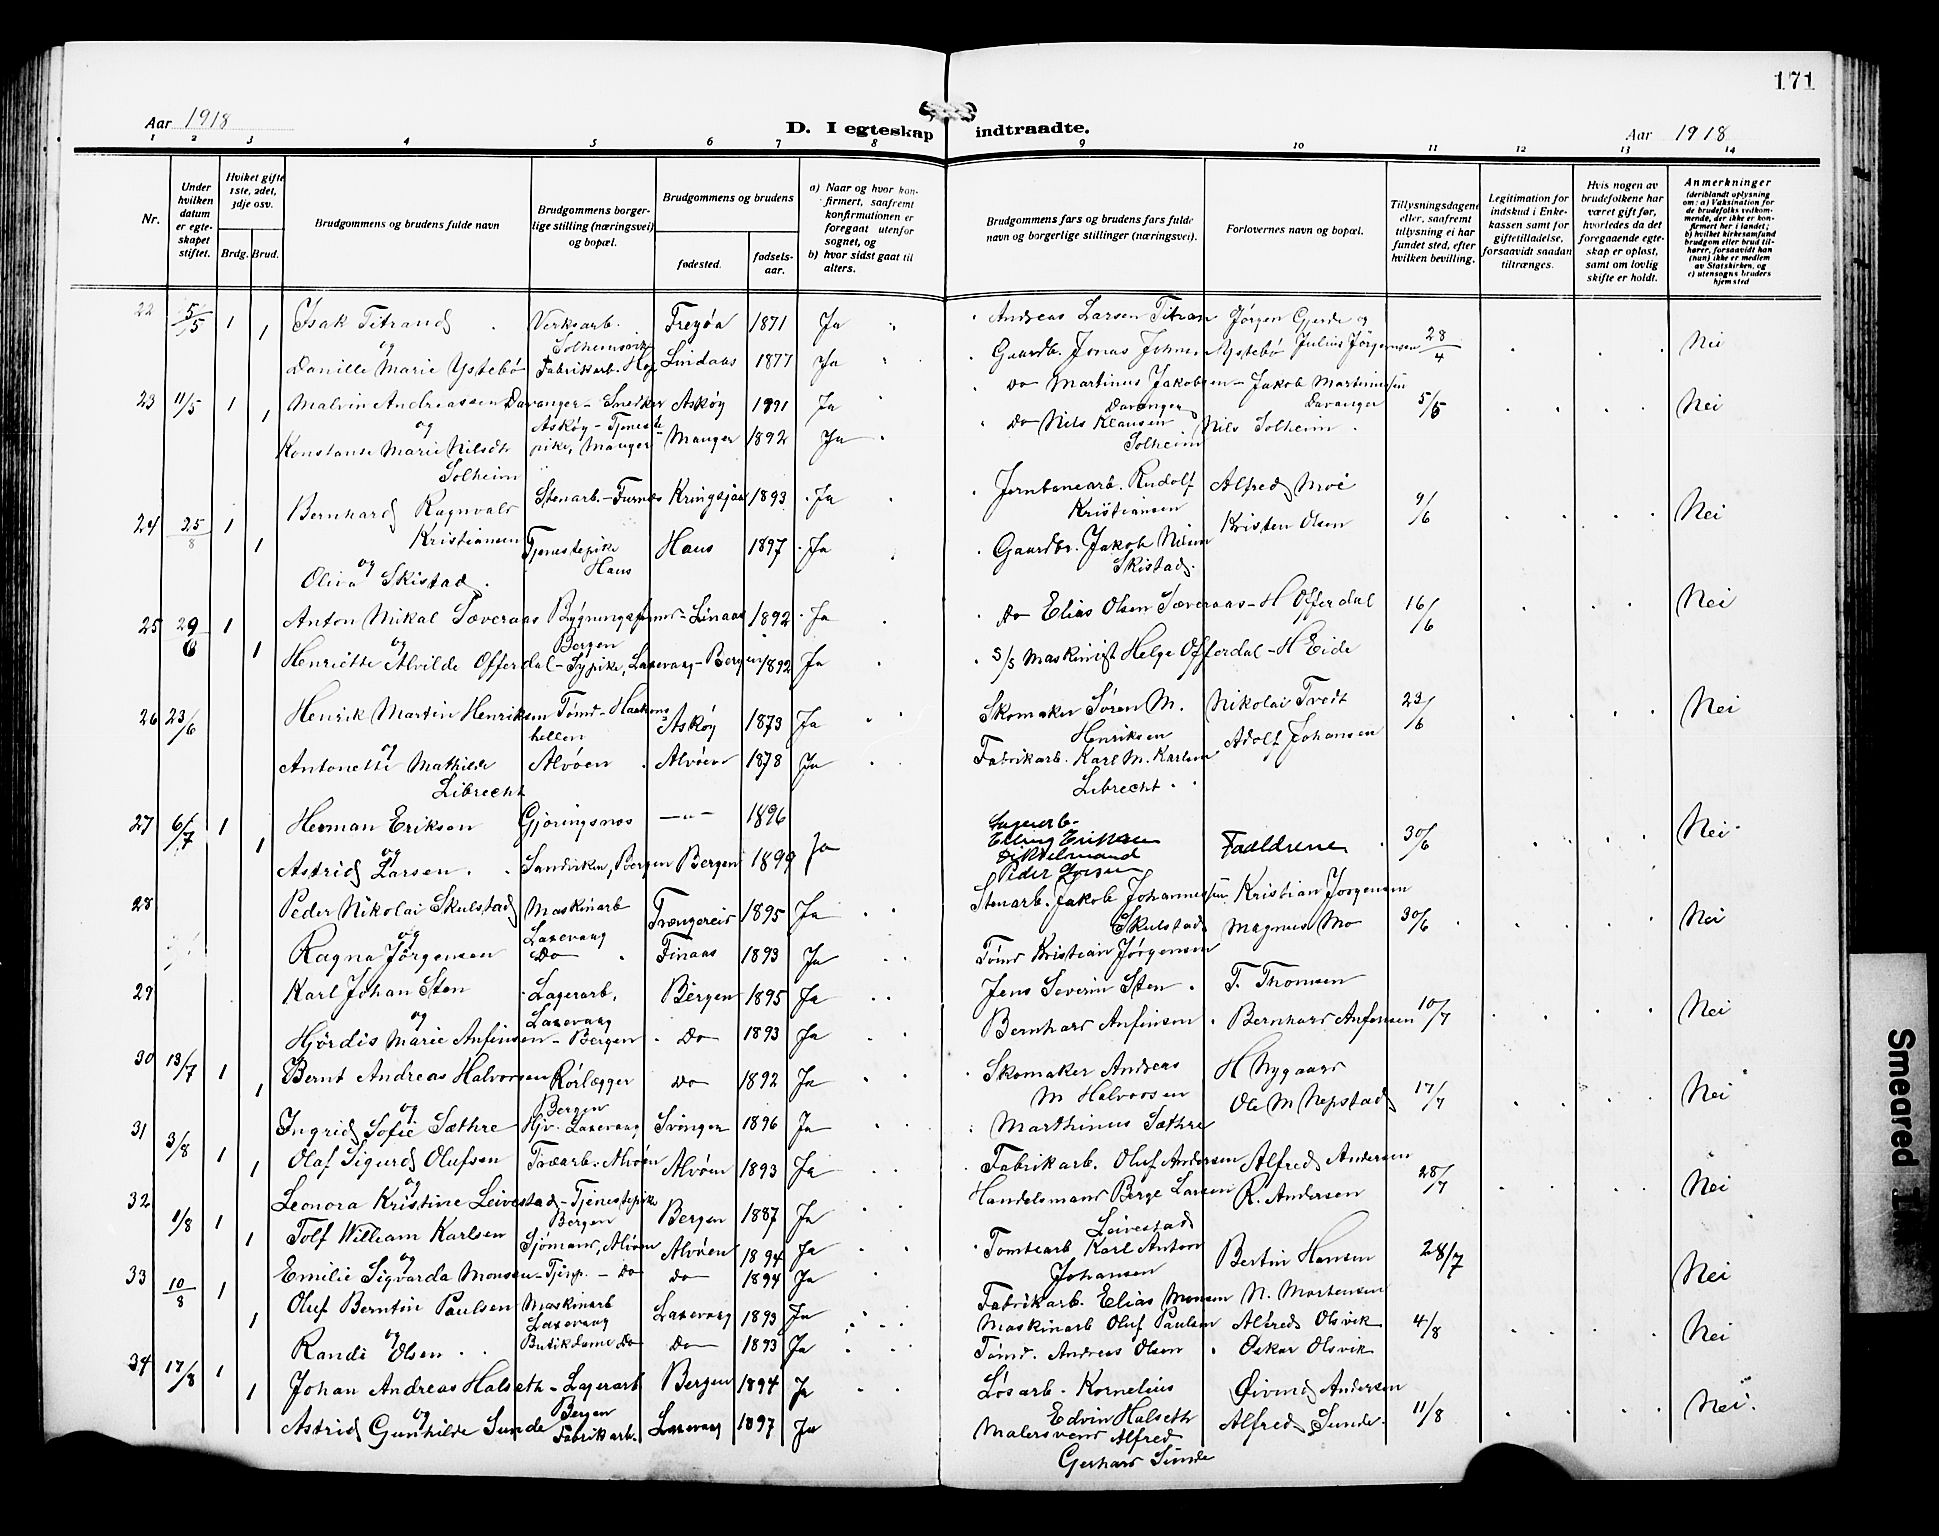 171
Aar 1918
D. I egteskap indtraadte.
Aar 1918
1 2 3 4 5 6 7 8 9 10 11 12 13 14
Nr.
Under hvilken datum er egteskapet stiftet.
Hviket gifte 1ste, 2det, 3dje osv.
Brdg. Brud.
Brudgommens og brudens fulde navn
Brudgommens borgerlige stilling (næringsvei) og bopæl.
Brudgommens og brudens
fødested.
fødselsaar.
a) Naar og hvor konfirmert, saafremt konfirmationen er foregaat utenfor sognet, og
b) hvor sidst gaat til alters.
Brudgommens fars og brudens fars fulde navn og borgerlige stillinger (næringsvei).
Forlovernes navn og bopæl.
Tillysningsdagene eller, saafremt tillysning ei har fundet sted, efter hvilken bevilling.
Legitimation for indskud i Enkekassen samt for giftetilladelse, forsaavidt saadan tiltrænges.
Hvis nogen av brudefolkene har været gift før, hvorledes da det foregaaende egteskap er opløst, samt om lovlig skifte er holdt.
Anmerkninger
(deriblandt oplysning om: a) Vaksination for de brudefolks vedkommende, der ikke er konfirmert her i landet; b) hvilket kirkesamfund brudgom eller brud tilhører, forsaavidt han (hun) ikke er medlem av Statskirken, og c) utensogns bruders hjemsted
22 5/5 1 1 Isak Titrand Verksarb. Solheimsvik Frøyøa 1871 Ja Andreas Larsen Titran Jørgen Gjerde og 28/4 Nei
og
Danille Marie Ystebø Fabrikarb. Hop Lindaas 1877 Ja Gaardb. Jonas Johnsen Ystebø Julius Jørgensen
23 11/5 1 1 Malvin Andreassen Daranger - Snedker Askøy 1891 Ja Do Martinus Jakobsen Daranger - Jakob Martinussen Daranger 5/5 Nei
og Askøy - Tjeneste
Konstanse Marie Nilsdtr Solheim pike, Manger Manger 1892 Ja Do Nils Klausen Solheim Nils Solheim
24 25/8 1 1 Bernhard Ragnvald Kristiansen Stenarb. - Furnes Kringsjaa 1893 Ja Jernbanearb. Rudolf Kristiansen Alfred Moe 9/6 Nei
og
Oliva Skistad Tjenestepike Haus Haus 1897 Ja Gaardbr. Jakob Nilsen Skistad Kristen Olsen
25 29/6 1 1 Anton Mikal Sæveraas Bergen Linaas 1892 Ja Do Elias Olsen Sæveraas - H Offerdal 16/6 Nei
og
Henriette Alvilde Offerdal - Sypike, Laxevaag - Bergen 1892 Ja S/S Maskinist Helge Offerdal - H Eide
26 23/6 Henrik Martin Henriksen Tømr - Haakonshellen Askøy 1873 Ja Skomaker Søren M. Henriksen Nikolai Tvedt 23/6 Nei
og
Antonette Mathilde Librecht Alvøen Alvøen 1878 Ja Fabrikarb. Karl M. Karlsen Librecht Adolf Johansen
27 6/7 1 1 Herman Eriksen Gjøringsnos —"— 1896 Elling Eriksen Faddrene 30/6 Nei
og
Astrid Larsen Sandviken, Bergen Bergen 1899 Ja Peder
28 Peder Nikolai Skulstad Maskinarb Laxevaag Trengereid 1895 Ja Stenarb. Jakob Johannessen Skulstad Kristian Jørgensen 30/6 Nei
og
Ragna Jørgensen Do Finaas 1893 Ja Tømr Kristian Jørgensen Magnus Mo
29 Karl Johan Sten Lagerarb. Laxevaag Bergen 1895 Ja Jens Severin Sten T. Thomsen 10/7 Nei
og
Hjørdis Marie Anfinsen - Bergen Do 1893 Ja Bernhard Anfinsen Bernhard Anfinsen
30 13/7 1 1 Bernt Andreas Halvorsen Rørlægger Bergen Do 1892 Ja Skomaker Andreas M Halvorsen H Nygaard 17/7 Nei
og
Ingrid Sofie Sæthre Hjv. Laxevaag Svinger 1896 Ja Marthinus Sæthre Ole M Nepstad
31 3/8 1 1 Olaf Sigurd Olufsen Træarb. Alvøen Alvøen 1893 Ja Fabrikarb. Oluf Andersen Alfred Andersen 28/7 Nei
og
Leonora Kristine Leivestad - Tjenestepik Bergen Bergen 1887 Ja Handelsmand Berge Larsen Leivestad R. Andersen
32 1/8 1 1 Tolf William Karlsen Sjømand, Alvøen Alvøen 1894 Ja Tomtearb Karl Anton Johansen Bertin Hansen 28/7 Nei
og
Emilie Sigvarda Monsen - Tjenp. - Do Do 1894 Ja Fabrikarb. Elias Monsen N. Mortensen
33 10/8 1 1 Oluf Berntin Paulsen Maskinarb Laxevaag Laxevaag 1893 Ja Maskinarb Oluf Paulsen Alfred Olsvik 4/8 Nei
og
Randi Olsen Butikdame Do Do 1893 Ja Tømr. Andreas Olsen Oskar Olsvik
34 17/8 1 1 Johan Andreas Halseth - Lagerarb Bergen Bergen 1894 Ja Løsarb. Kornelius Edvin Halseth Øivind Andersen 11/8 Nei.
og
Astrid Gunhilde Sunde Fabrikarb. Laxevaag 1897 Ja Malersvend Alfred Gerhard Sunde Alfred Sunde
Smeared